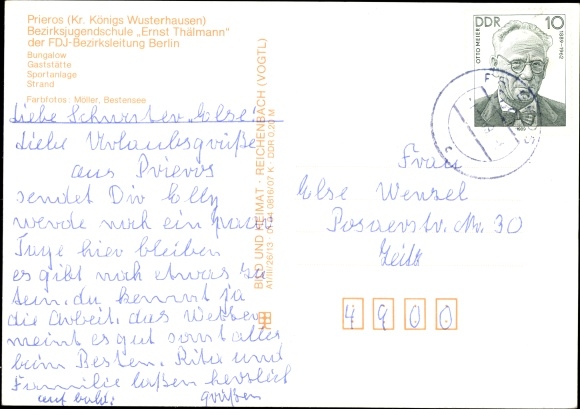 Prieros (Kr. Königs Wusterhausen)
Bezirksjugendschule „Ernst Thälmann"
der FDJ-Bezirksleitung Berlin
Bungalow
Gaststätte
Sportanlage
Strand
Farbfotos: Möller, Bestensee
Liebe Schwester „Else"
Liebe Urlaubsgrüße
aus Prieros
sendet Dir Elly
werde noch ein paar
Tage hier bleiben
es gibt noch etwas zu
tun, du kennst ja
die Arbeit, das Wetter
meint es gut sonst alles
beim Besten. Rita und
Familie laßen herzlich
auf bald. grüßen
BILD UND HEIMAT · REICHENBACH (VOGTL)
A1/III/26/13 01 04 0816/07 K · DDR 0,20 M
DDR 10
OTTO MEIER
1889-1962
Frau
Else Wenzel
Posaerstr. Nr. 30
Zeitz
4900